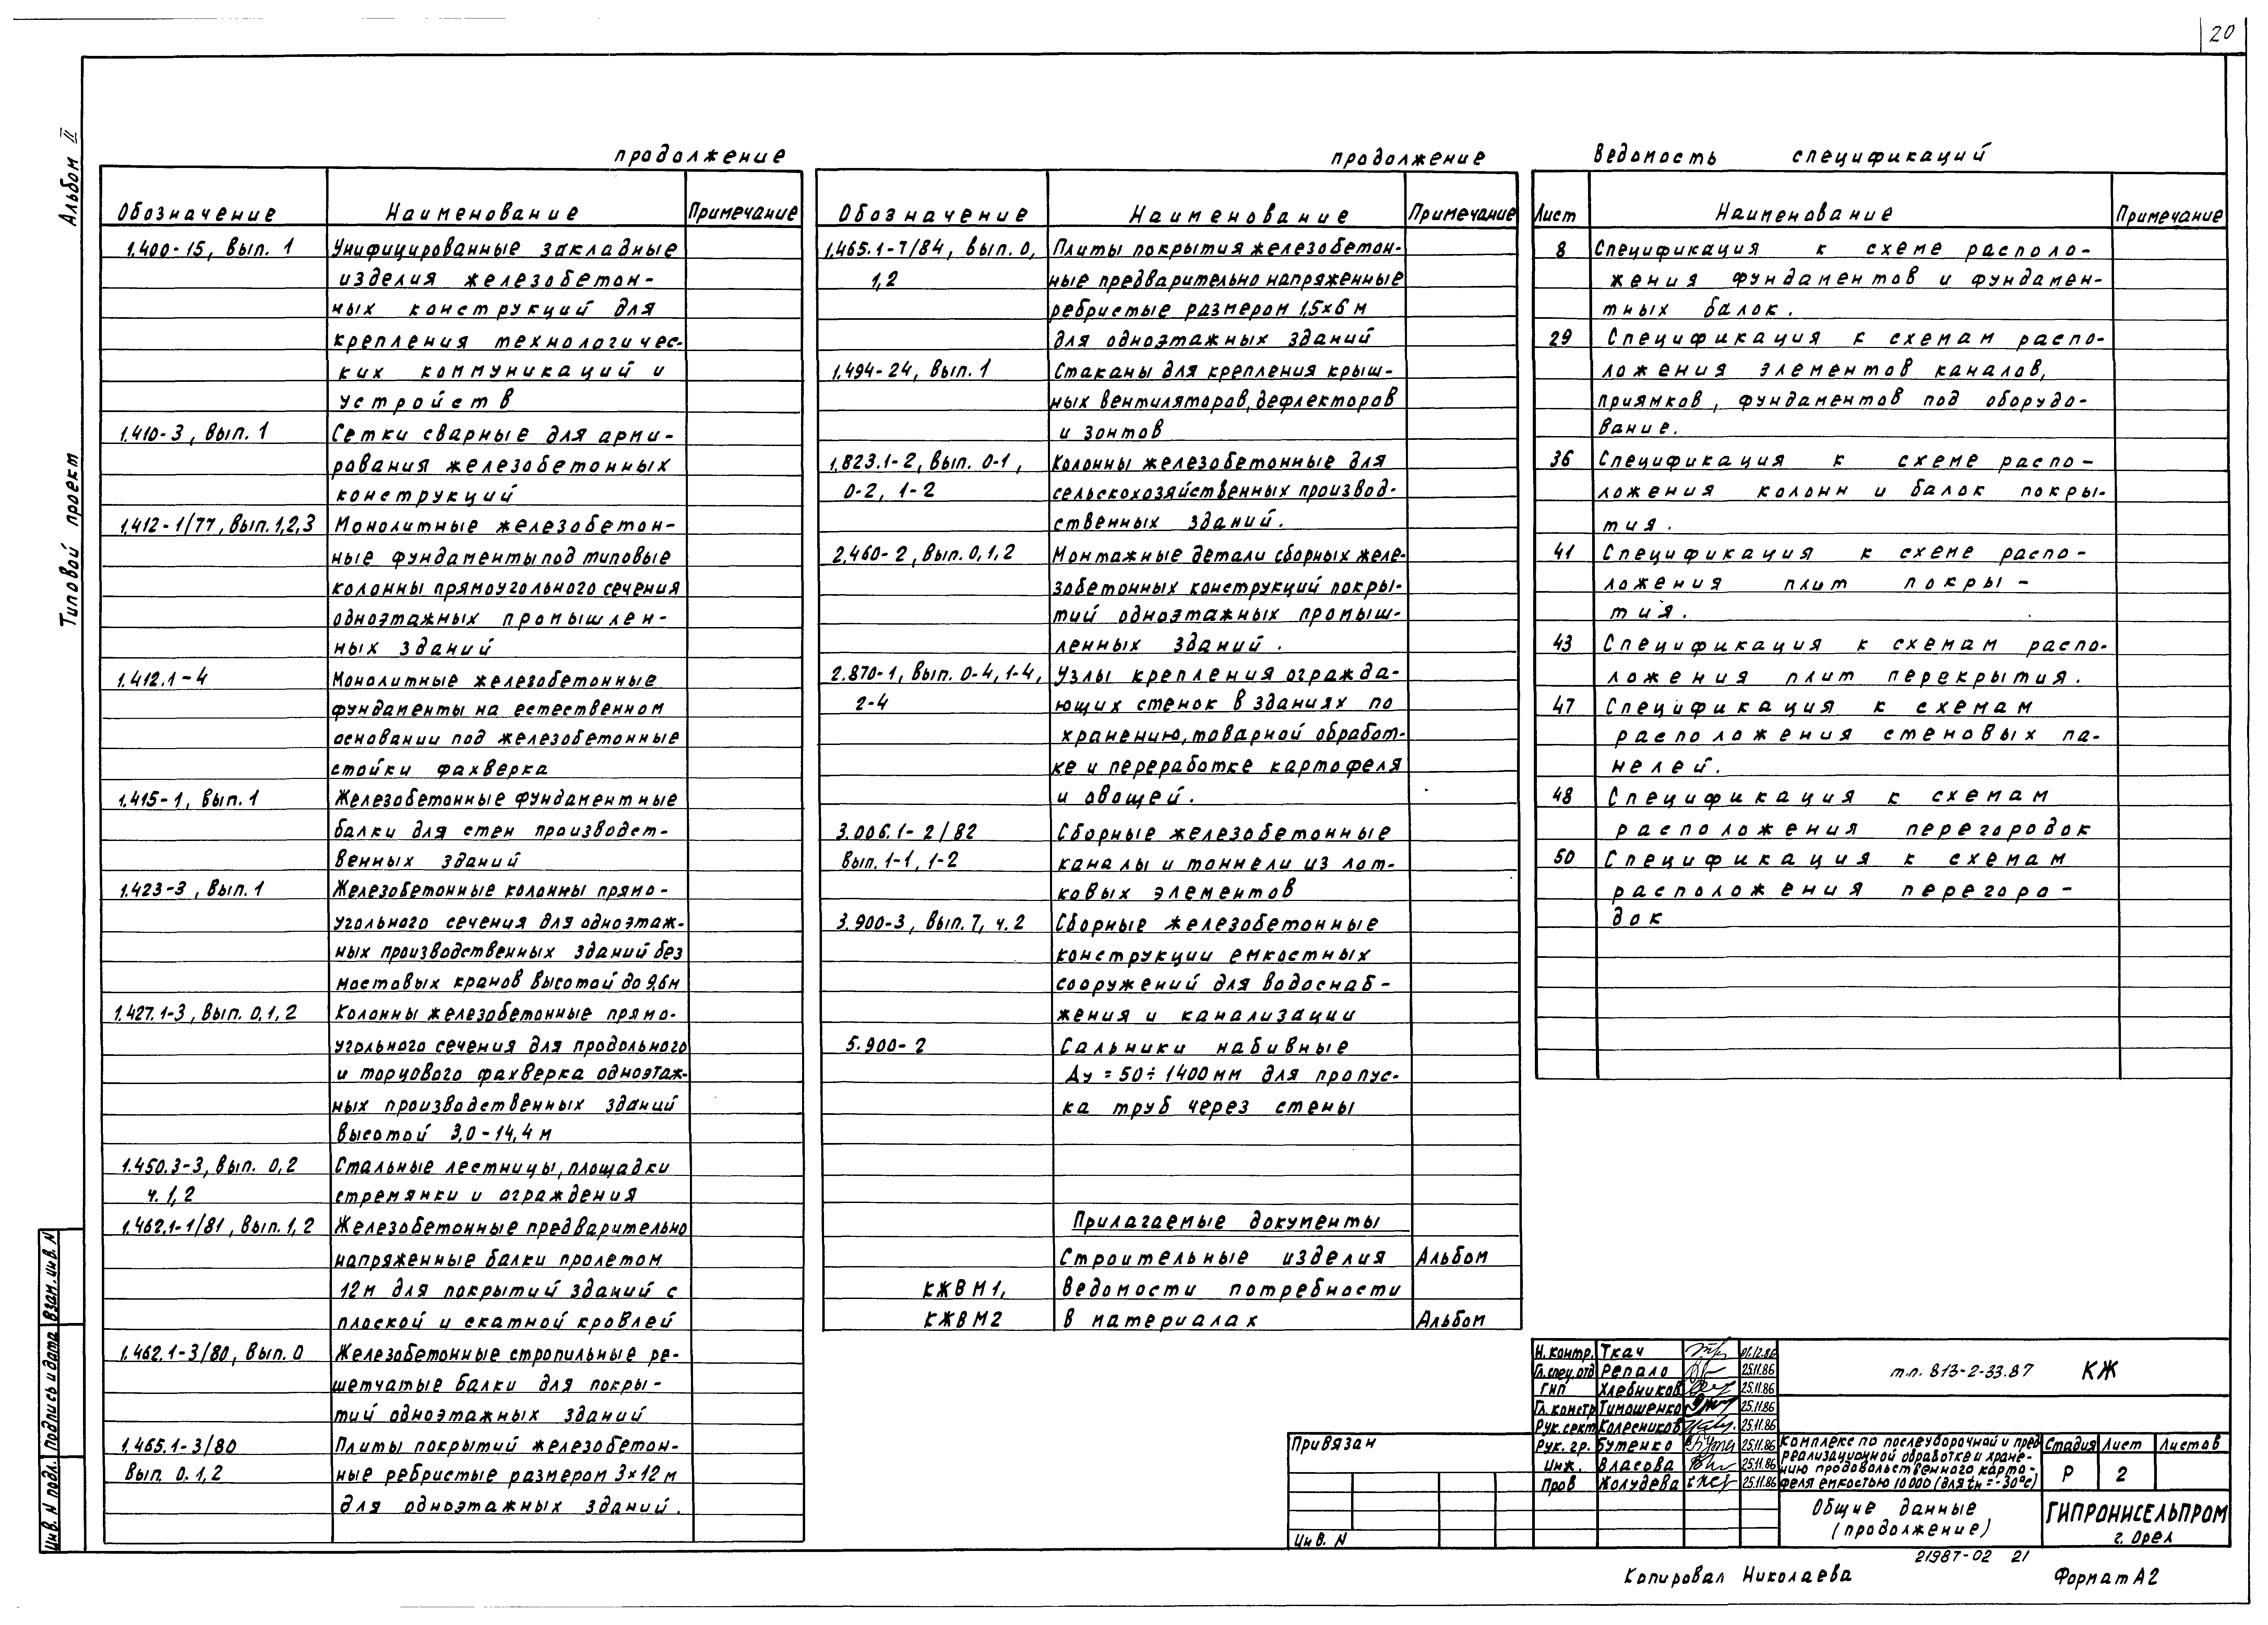 20
Альбом II
Типовой проект
продолжение
Обозначение Наименование Примечание
1.400-15, Вып. 1 Унифицированные закладные
изделия железобетон-
ных конструкций для
крепления технологичес-
ких коммуникаций и
устройств
1.410-3, Вып. 1 Сетки сварные для арми-
рования железобетонных
конструкций
1.412-1/77, Вып. 1,2,3 Монолитные железобетон-
ные фундаменты под типовые
колонны прямоугольного сечения
одноэтажных промышлен-
ных зданий
1.412.1-4 Монолитные железобетонные
фундаменты на естественном
основании под железобетонные
стойки фахверка
1.415-1, Вып. 1 Железобетонные фундаментные
балки для стен производст-
венных зданий
1.423-3, Вып. 1 Железобетонные колонны прямо-
угольного сечения для одноэтаж-
ных производственных зданий без
мостовых кранов высотой до 9,6м
1.427.1-3, Вып. 0,1,2 Колонны железобетонные прямо-
угольного сечения для продольного
и торцового фахверка одноэтаж-
ных производственных зданий
высотой 3,0-14,4м
1.450.3-3, Вып. 0,2 Стальные лестницы, площадки
ч. 1,2 стремянки и ограждения
1.462.1-1/81, Вып. 1, 2 Железобетонные предварительно
напряженные балки пролетом
12м для покрытий зданий с
плоской и скатной кровлей
1.462.1-3/80, Вып. 0 Железобетонные стропильные ре-
шетчатые балки для покры-
тий одноэтажных зданий
1.465.1-3/80 Плиты покрытий железобетон-
Вып. 0.1,2 ные ребристые размером 3×12м
для одноэтажных зданий.
продолжение
Обозначение Наименование Примечание
1.465.1-7/84, вып. 0, Плиты покрытия железобетон-
1,2 ные предварительно напряженные
ребристые размером 1,5×6м
для одноэтажных зданий
1.494-24, Вып. 1 Стаканы для крепления крыш-
ных вентиляторов, дефлекторов
и зонтов
1.823.1-2, Вып. 0-1, Колонны железобетонные для
0-2, 1-2 сельскохозяйственных производ-
ственных зданий.
2.460-2, Вып. 0,1,2 Монтажные детали сборных желе-
зобетонных конструкций покры-
тий одноэтажных промыш-
ленных зданий.
2.870-1, Вып. 0-4, 1-4, Узлы крепления огражда-
2-4 ющих стенок в зданиях по
хранению, товарной обработ-
ке и переработке картофеля
и овощей.
3.006.1-2/82 Сборные железобетонные
Вып. 1-1, 1-2 каналы и тоннели из лот-
ковых элементов
3.900-3, Вып. 7, ч. 2 Сборные железобетонные
конструкции емкостных
сооружений для водоснаб-
жения и канализации
5.900-2 Сальники набивные
Ду = 50÷1400мм для пропус-
ка труб через стены
Прилагаемые документы
Строительные изделия Альбом
КЖВМ1, Ведомости потребности
КЖВМ2 в материалах Альбом
Ведомость спецификаций
Лист Наименование Примечание
8 Спецификация к схеме располо-
жения фундаментов и фундамен-
тных балок.
29 Спецификация к схемам распо-
ложения элементов каналов,
приямков, фундаментов под оборудо-
вание.
36 Спецификация к схеме распо-
ложения колонн и балок покры-
тия.
41 Спецификация к схеме распо-
ложения плит покры-
тия.
43 Спецификация к схемам распо-
ложения плит перекрытия.
47 Спецификация к схемам
расположения стеновых па-
нелей.
48 Спецификация к схемам
расположения перегородок
50 Спецификация к схемам
расположения перегоро-
док
Взам. инв. N
Подпись и дата
Инв. N подл.
Привязан
Инв. N
Н. контр. Ткач 01.12.86
Гл. спец. отд Репало 25.11.86
ГИП Хлебников 25.11.86
Гл. констр Тимошенко 25.11.86
Рук. сект Колесников 25.11.86
Рук. гр. Бутенко 25.11.86
Инж. Власова 25.11.86
Пров Жолудева 25.11.86
т.п. 813-2-33.87 КЖ
Комплекс по послеуборочной и пред
реализационной обработке и хране-
нию продовольственного карто-
феля емкостью 10000 (для tн = -30°С)
Стадия Лист Листов
Р 2
Общие данные
(продолжение)
ГИПРОНИСЕЛЬПРОМ
г. Орел
21987-02 21
Копировал Николаева Формат А2